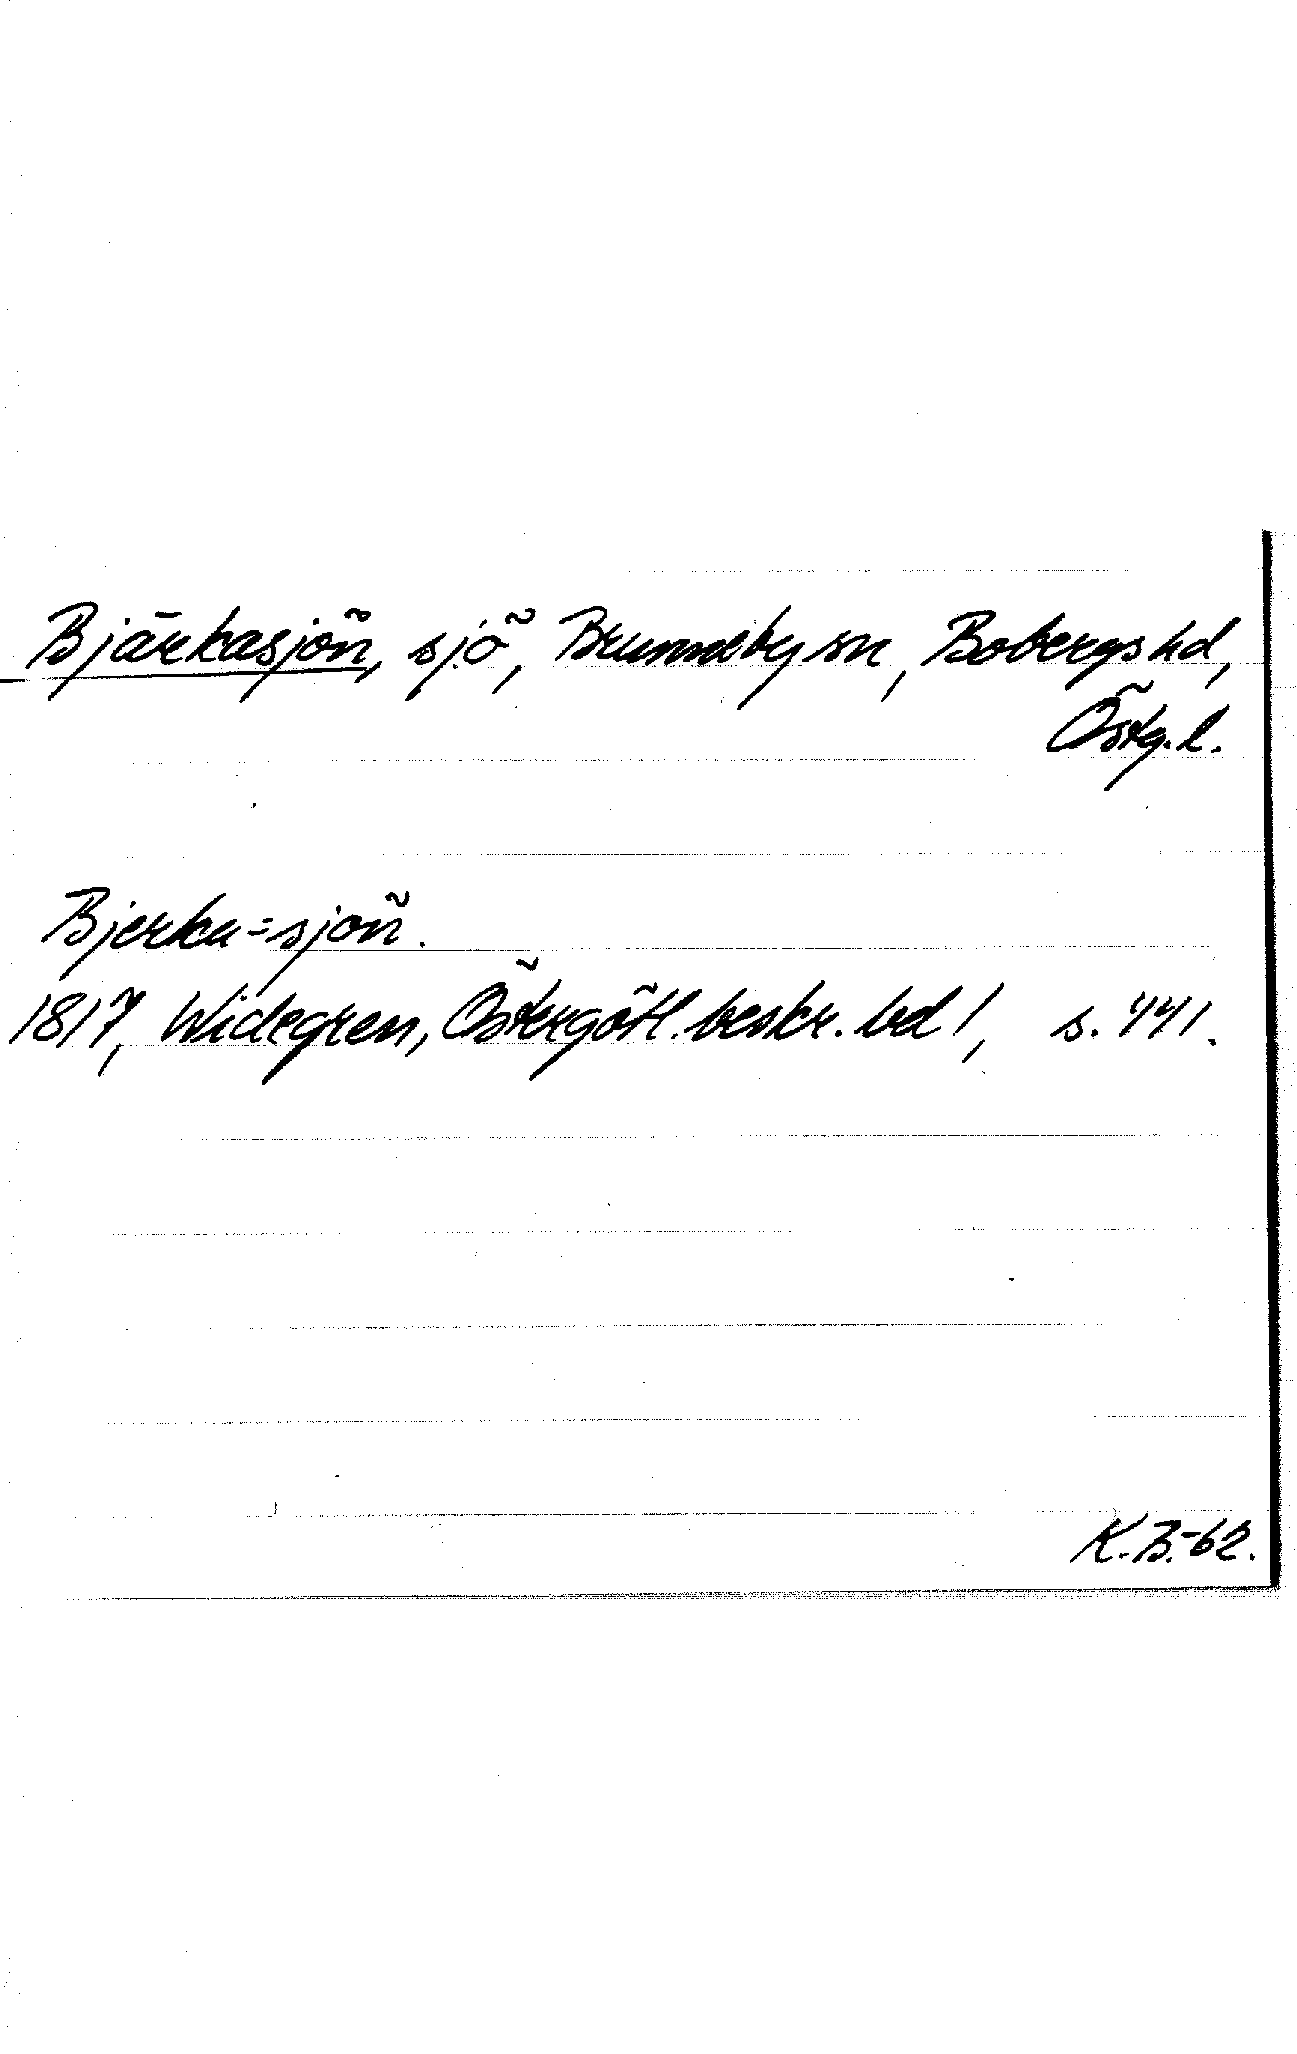 Bjärkasjön, sjö, Brunneby sn, Bobergs hd,
Östg. l.
Bjerka=sjön.
1817, Widegren, Östergötl. beskr. bd 1, s. 441.
K.B.-62.